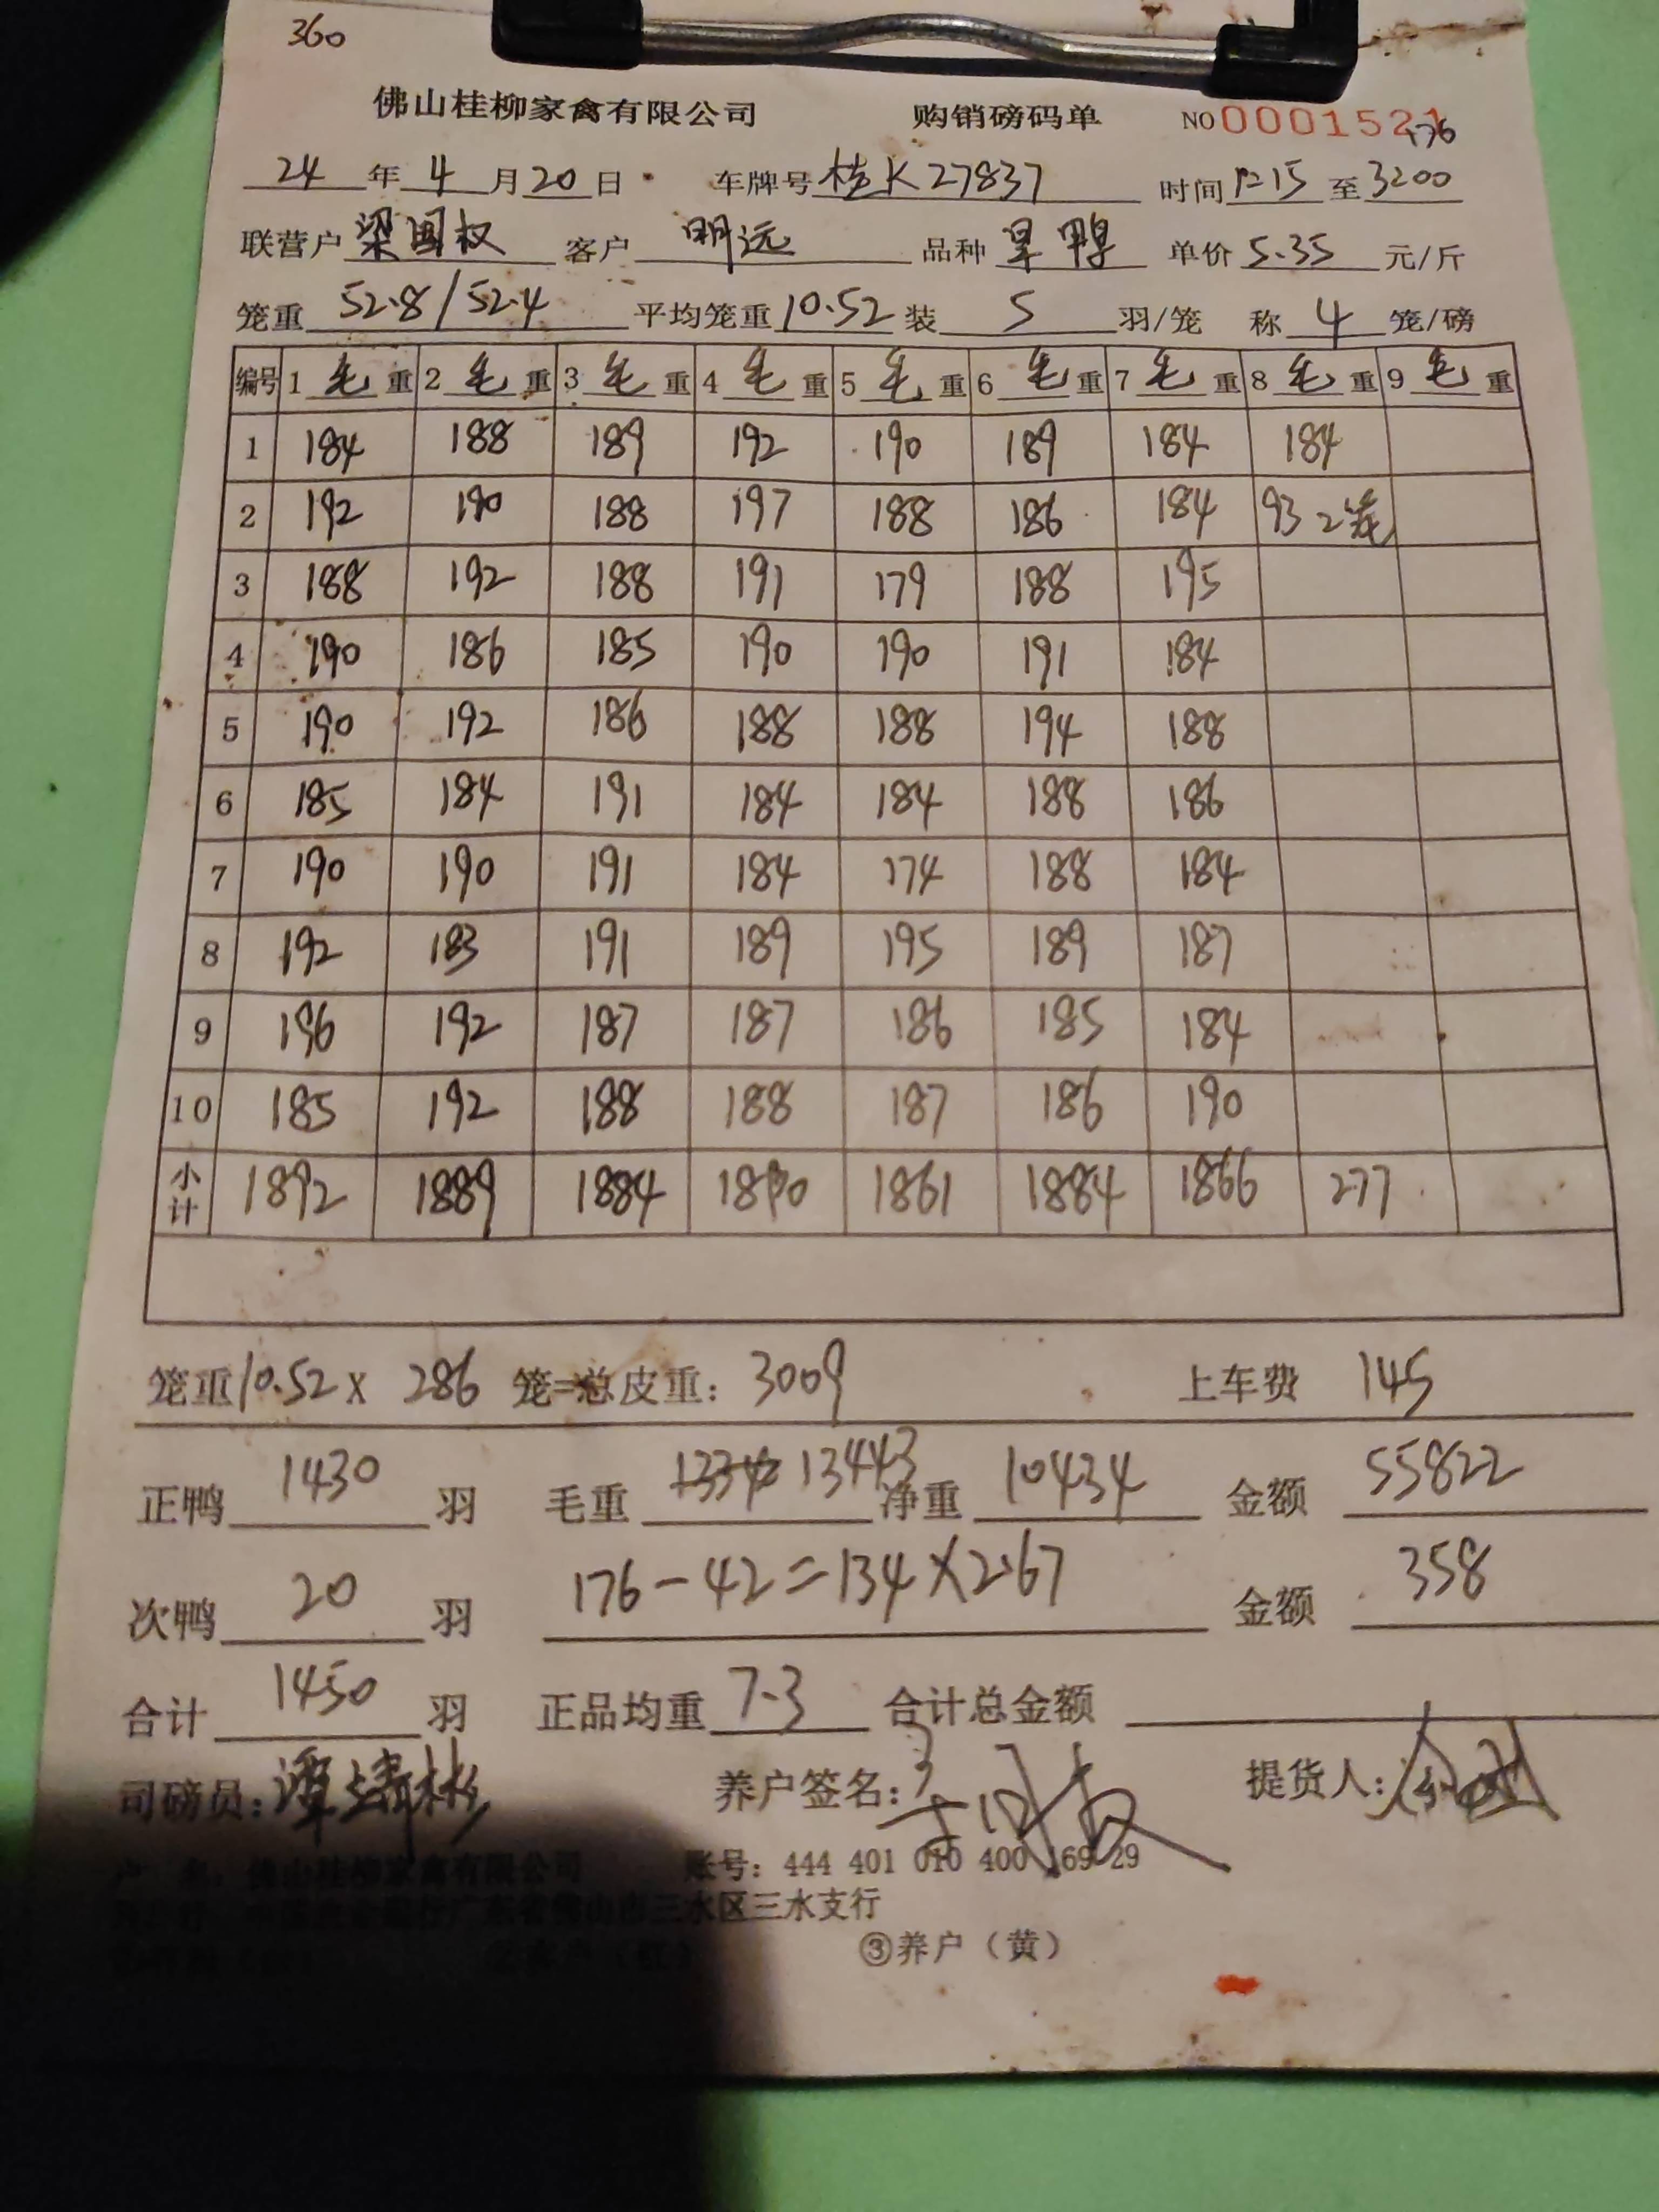 360
佛山桂柳家禽有限公司 购销磅码单 NO 0001521
+76
24 年 4 月 20 日 车牌号 桂K27837 时间 12:15 至 3200
联营户 梁国权 客户 明远 品种 旱鸭 单价 5.35 元/斤
笼重 52.8/52.4 平均笼重 10.52 装 5 羽/笼 称 4 笼/磅
编号 1 毛 重 2 毛 重 3 毛 重 4 毛 重 5 毛 重 6 毛 重 7 毛 重 8 毛 重 9 毛 重
1 184 188 189 192 190 189 184 184
2 192 190 188 197 188 186 184 93 2笼
3 188 192 188 191 179 188 195
4 190 186 185 190 190 191 184
5 190 192 186 188 188 194 188
6 185 184 191 184 184 188 186
7 190 190 191 184 174 188 184
8 192 183 191 189 195 189 187
9 196 192 187 187 186 185 184
10 185 192 188 188 187 186 190
小计 1892 1889 1884 1890 1861 1884 1866 277
笼重 10.52 X 286 笼=总皮重: 3009 上车费 145
正鸭 1430 羽 毛重 13443 净重 10434 金额 55822
次鸭 20 羽 176-42=134×2.67 金额 358
合计 1450 羽 正品均重 7.3 合计总金额
司磅员: 养户签名: 提货人:
户 名: 佛山桂柳家禽有限公司 账号: 444 401 010 400 169 29
广东省佛山市三水区三水支行
③养户（黄）